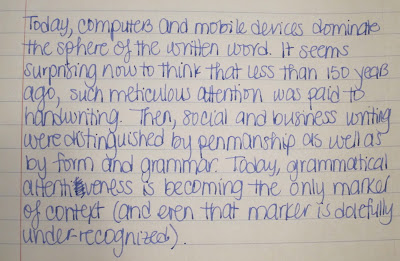 Today, computers and mobile devices dominate
the sphere of the written word. It seems
surprising now to think that less than 150 years
ago, such meticulous attention was paid to
handwriting. Then, social and business writing
were distinguished by penmanship as well as
by form and grammar. Today, grammatical
attentiveness is becoming the only marker
of context (and even that marker is dolefully
under-recognized).